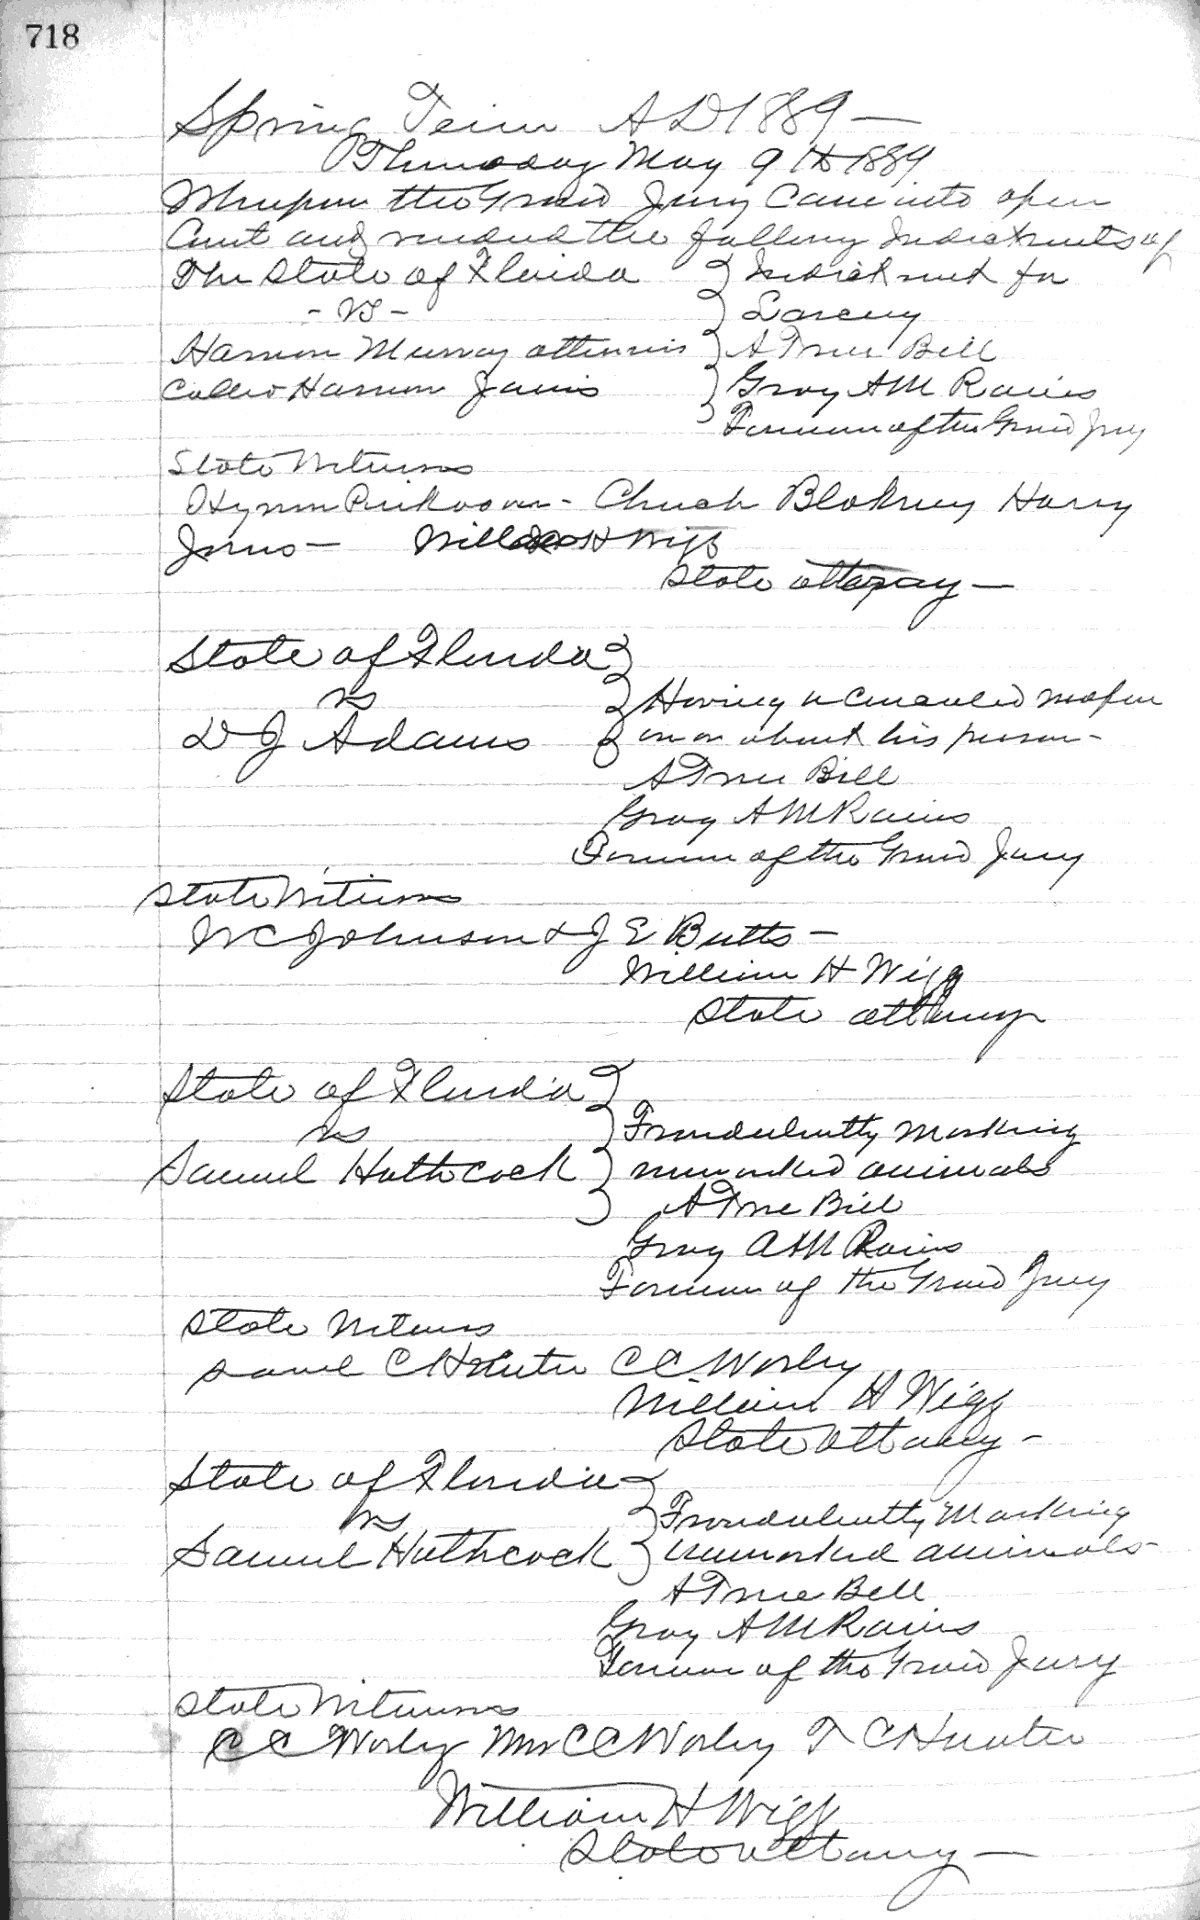 718
Spring Term A D 1889 —
Thursday May 9th 1889
Whupon the Grand Jury Came into open
Court and the Indictments of
The State of Florida } Indictment for
- vs - } Larceny
Harmon Murray } A True Bill
Called Harmon } Gray A M Rains
Forman of the Grand Jury
State Witness
Chuck Blakney Harry
Jones — Will H Wigg
State attorney —
State of Florida }
vs } Having a Concealed
D J Adams } on or about his person -
A True Bill
Gray A M Rains
Forman of the Grand Jury
State Witness
W C Johnson & J E Butts —
William H Wigg
State attorney
State of Florida }
vs } Fraudulently Marking
Samuel Hathcock } unmarked animals
A True Bill
Gray A M Rains
Forman of the Grand Jury
State Witness
C Hunter C C Worley
William H Wigg
State attorney -
State of Florida }
vs } Fraudulently Marking
Samuel Hathcock } unmarked animals -
A True Bell
Gray A M Rains
Forman of the Grand Jury
State Witness
C C Worley Mrs C C Worley T C Hunter
William H Wigg
State attorney —